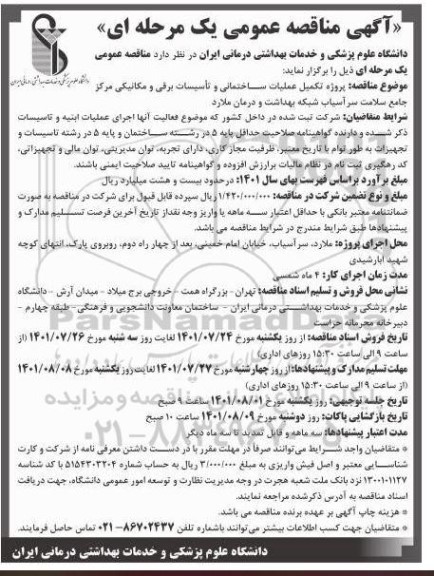 «آگهی مناقصه عمومی یک مرحله ای»
دانشگاه علوم پزشکی و خدمات بهداشتی درمانی ایران در نظر دارد مناقصه عمومی
یک مرحله ای ذیل را برگزار نماید:
موضوع مناقصه: پروژه تکمیل عملیات ساختمانی و تأسیسات برقی و مکانیکی مرکز
جامع سلامت سرآسیاب شبکه بهداشت و درمان ملارد
شرایط متقاضیان: شرکت ثبت شده در داخل کشور که موضوع فعالیت آنها اجرای عملیات ابنیه و تاسیسات
ذکر شده و دارنده گواهینامه صلاحیت حداقل پایه ۵ در رشته ساختمان و پایه ۵ در رشته تاسیسات و
تجهیزات به طور توام با تاریخ معتبر، ظرفیت مجاز کاری، دارای تجربه، توان مدیریتی، توان مالی و تجهیزاتی،
کد رهگیری ثبت نام در نظام مالیات برارزش افزوده و گواهینامه تایید صلاحیت ایمنی باشند.
مبلغ برآورد براساس فهرست بهای سال ۱۴۰۱: درحدود بیست و هشت میلیارد ریال
مبلغ و نوع تضمین شرکت در مناقصه: ۱/۴۲۰/۰۰۰/۰۰۰ ریال سپرده قابل قبول برای شرکت در مناقصه به صورت
ضمانتنامه معتبر بانکی با حداقل اعتبار سه ماهه یا واریز وجه نقد از تاریخ آخرین فرصت تسلیم مدارک و
پیشنهادها طبق شرایط مندرج در شرایط مناقصه می باشد.
محل اجرای پروژه: ملارد، سرآسیاب، خیابان امام خمینی، بعد از چهار راه دوم، روبروی پارک، انتهای کوچه
شهید آبارشیدی
مدت زمان اجرای کار: ۴ ماه شمسی
نشانی محل فروش و تسلیم اسناد مناقصه: تهران - بزرگراه همت - خروجی برج میلاد - میدان آرش - دانشگاه
علوم پزشکی و خدمات بهداشتی درمانی ایران - ساختمان معاونت دانشجویی و فرهنگی - طبقه چهارم -
دبیرخانه محرمانه حراست
تاریخ فروش اسناد مناقصه: از روز یکشنبه مورخ ۱۴۰۱/۰۷/۲۴ لغایت روز سه شنبه مورخ ۱۴۰۱/۰۷/۲۶ (از
ساعت ۹ الی ساعت ۱۵:۳۰ روزهای اداری)
مهلت تسلیم مدارک و پیشنهادها: از روز چهارشنبه مورخ ۱۴۰۱/۰۷/۲۷ لغایت روز یکشنبه مورخ ۱۴۰۱/۰۸/۰۸
(از ساعت ۹ الی ساعت ۱۵:۳۰ روزهای اداری)
تاریخ جلسه توجیهی: روز یکشنبه مورخ ۱۴۰۱/۰۸/۰۱ ساعت ۹ صبح
تاریخ بازگشایی پاکات: روز دوشنبه مورخ ۱۴۰۱/۰۸/۰۹ ساعت ۱۰ صبح
مدت اعتبار پیشنهادها: سه ماهه و قابل تمدید تا سه ماه دیگر
* متقاضیان واجد شرایط می توانند صرفاً در مهلت مقرر با در دست داشتن معرفی نامه از شرکت و کارت
شناسایی معتبر و اصل فیش واریزی به مبلغ ۳/۰۰۰/۰۰۰ ریال به حساب شماره ۵۱۵۴۳۰۲۲۰۴ با کد شناسه
۱۳۰۰۱۰۱۱۲۷ نزد بانک ملت شعبه هجرت در وجه مدیریت نظارت و توسعه امور عمومی دانشگاه، جهت دریافت
اسناد مناقصه به آدرس ذکرشده مراجعه نمایند.
* هزینه چاپ آگهی بر عهده برنده مناقصه می باشد.
* متقاضیان جهت کسب اطلاعات بیشتر می توانند باشماره تلفن ۸۶۷۰۲۴۳۷-۰۲۱ تماس حاصل فرمایند.
دانشگاه علوم پزشکی و خدمات بهداشتی درمانی ایران